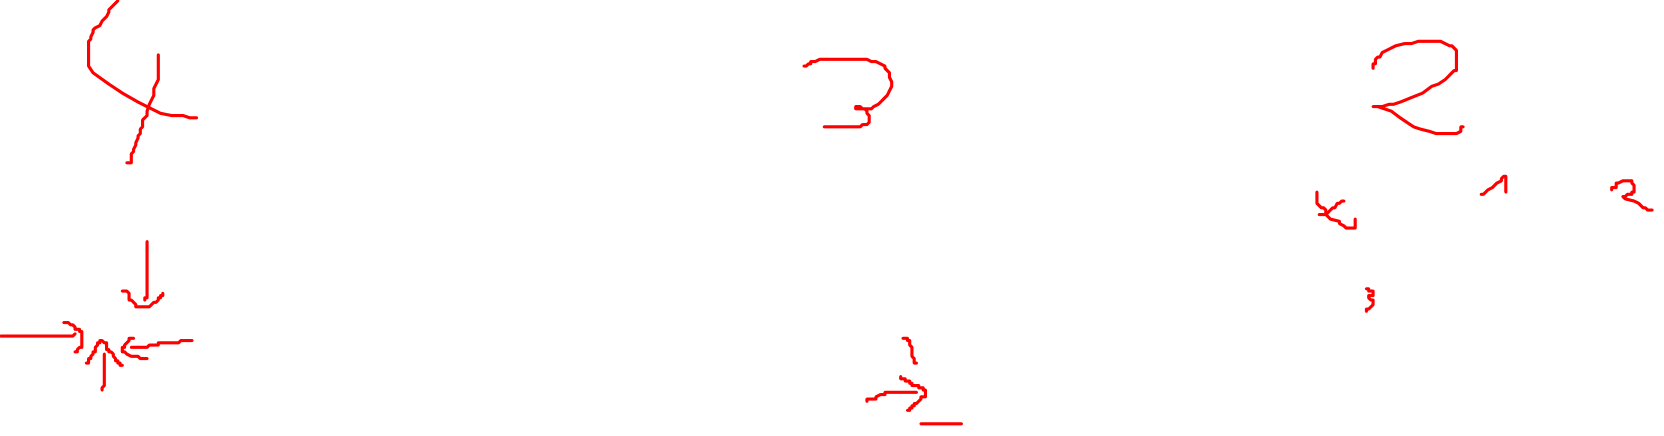 4 3 2
1 2
3